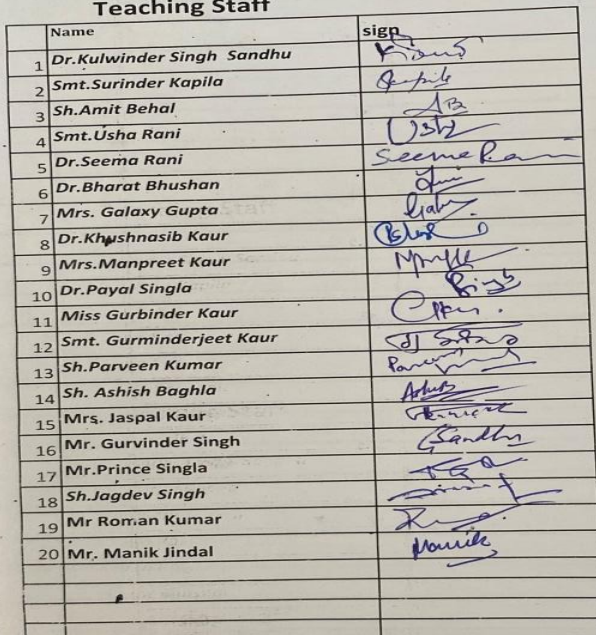 Teaching Staff
Name sign
1 Dr.Kulwinder Singh Sandhu
2 Smt.Surinder Kapila
3 Sh.Amit Behal AB
4 Smt.Usha Rani Usha
5 Dr.Seema Rani Seema Rani
6 Dr.Bharat Bhushan
7 Mrs. Galaxy Gupta
8 Dr.Khushnasib Kaur
9 Mrs.Manpreet Kaur
10 Dr.Payal Singla
11 Miss Gurbinder Kaur
12 Smt. Gurminderjeet Kaur
13 Sh.Parveen Kumar
14 Sh. Ashish Baghla
15 Mrs. Jaspal Kaur
16 Mr. Gurvinder Singh GSandhu
17 Mr.Prince Singla
18 Sh.Jagdev Singh
19 Mr Roman Kumar
20 Mr. Manik Jindal Manik